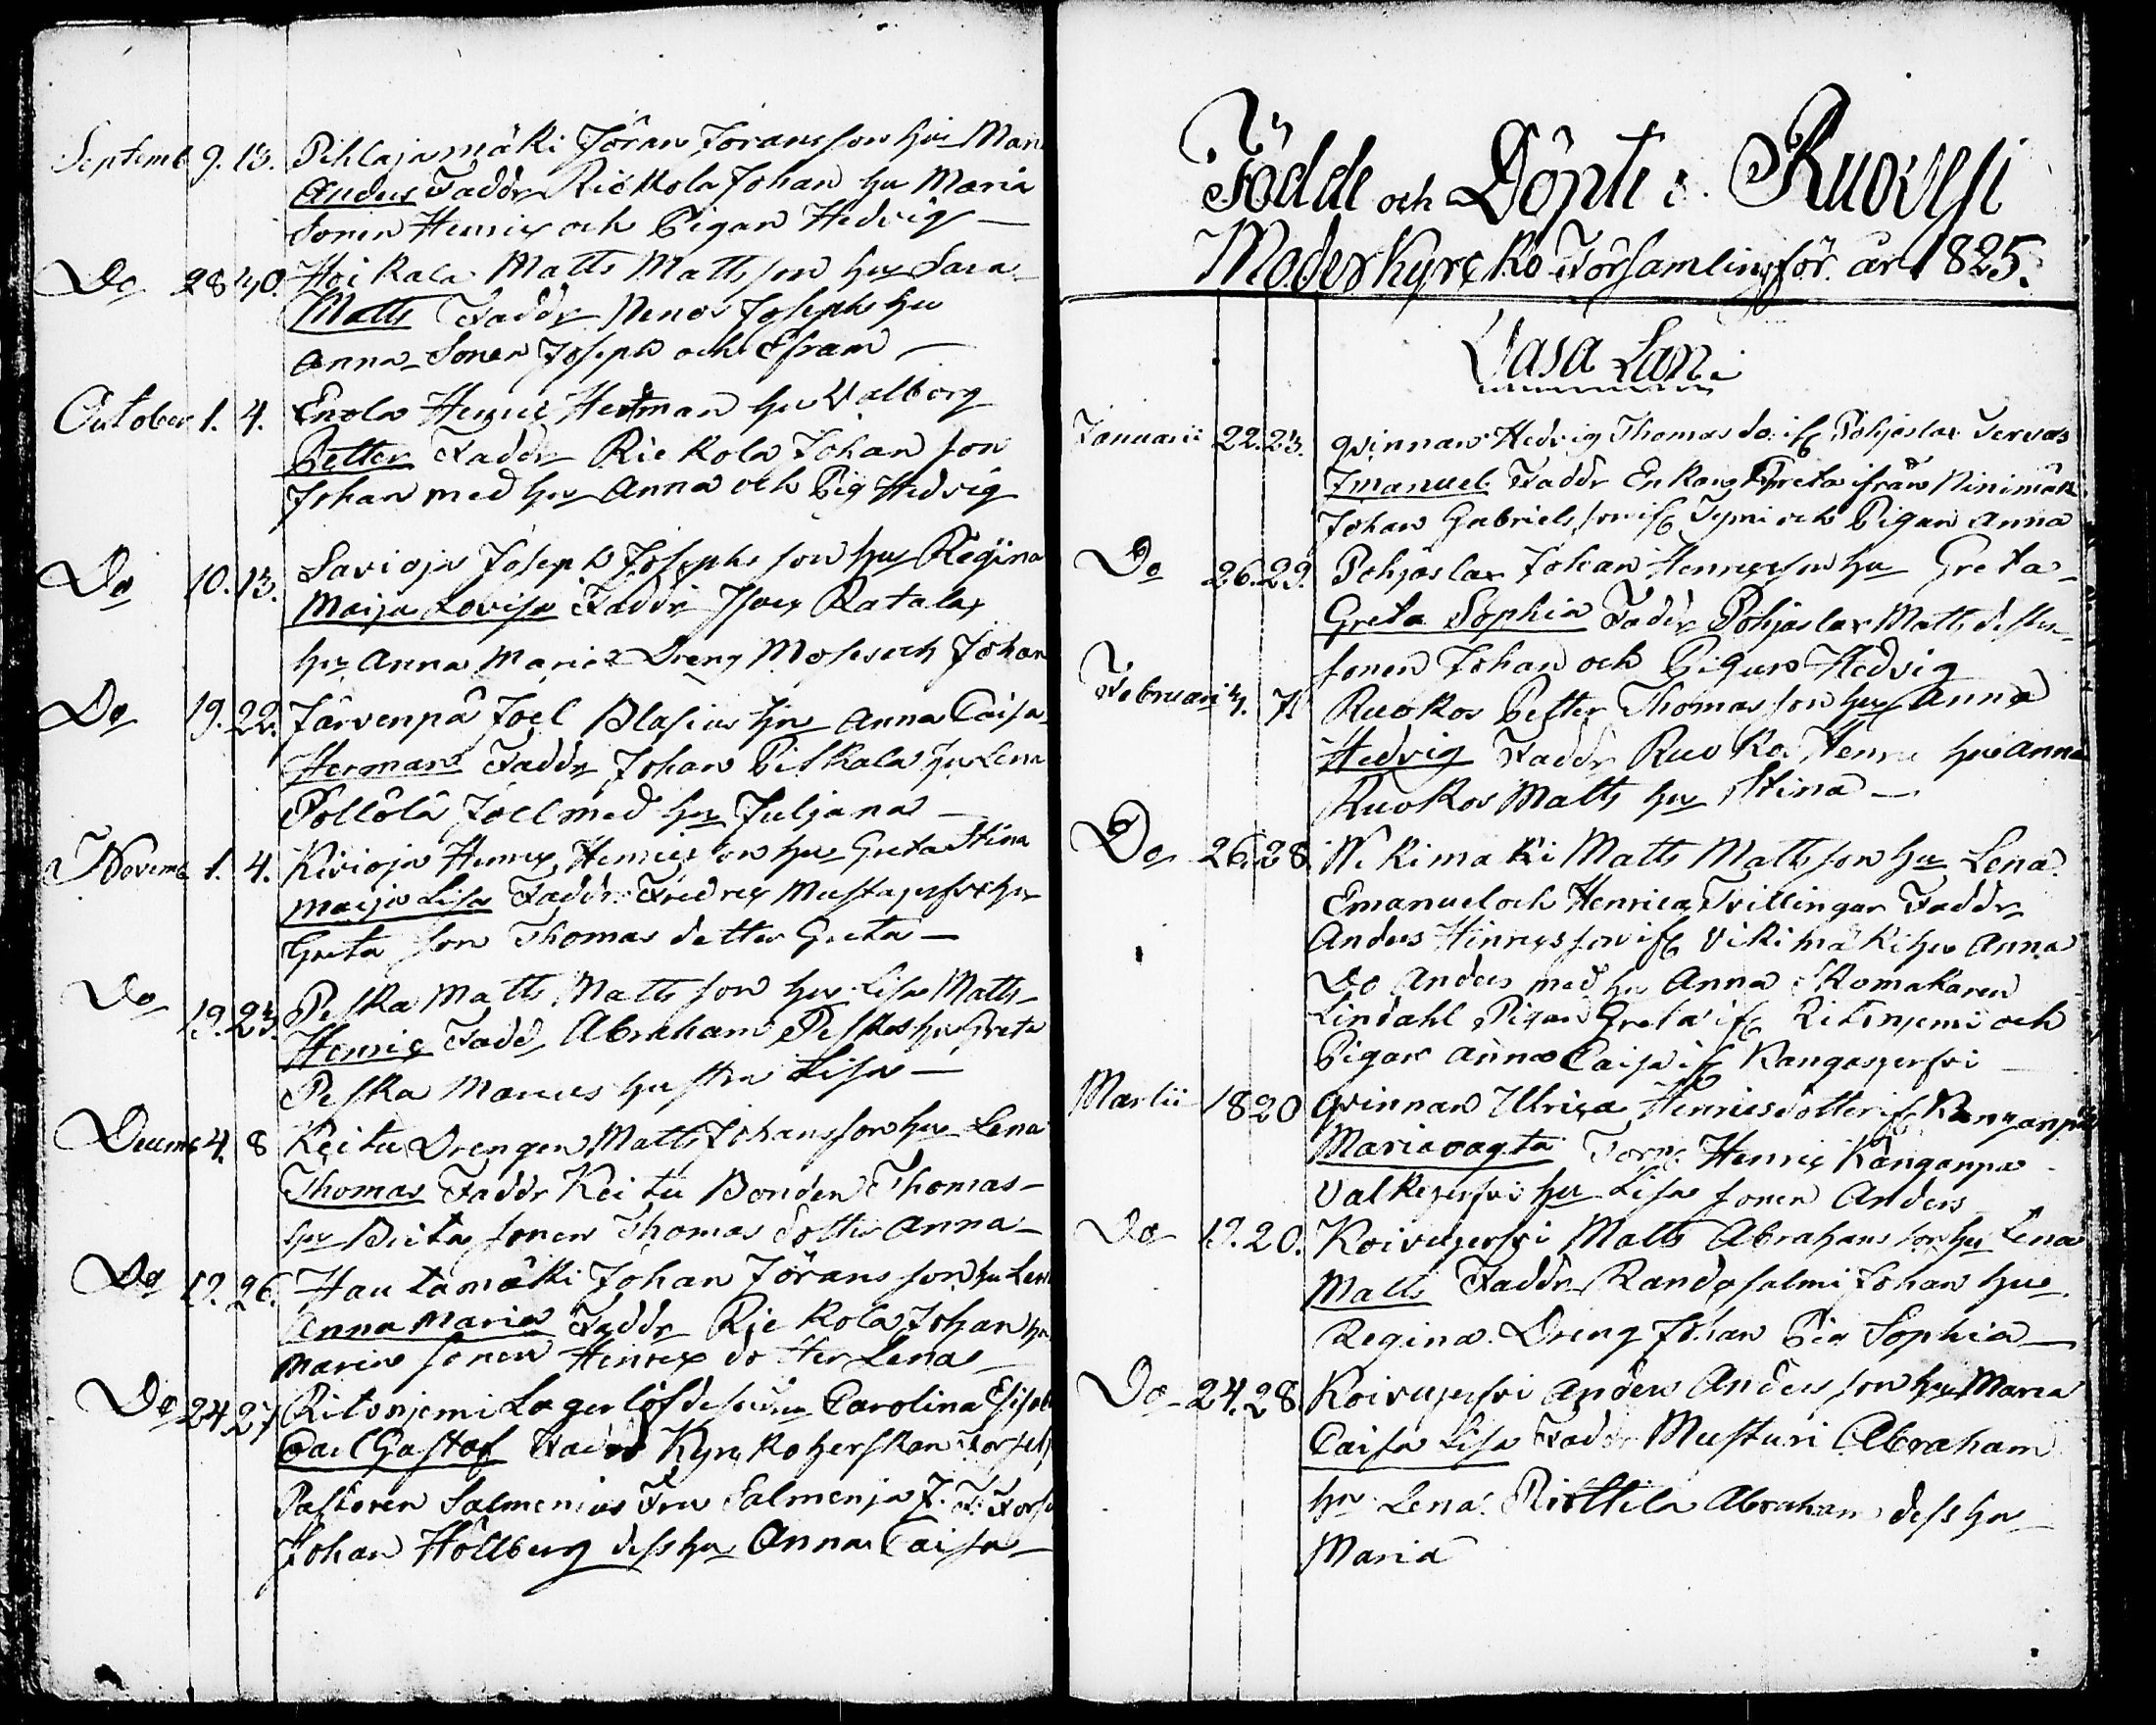 Septemb 9. 13. Pihlajamäki Jöran Joransson hu Mari
Anders Faddr Riekola Johan hu Maria
Sonen Henric och Pigan Hedvig —
Do 28 30. Heikala Matts Mattsson hu Sara
Matts Faddr Nenos Josephs hu
Anna Sonen Joseph och Efram —
October 1. 4. Enola Henric Hetman hu Valborg
Petter Faddr Riekola Johan son
Johan med hu Anna och Pig Hedvig
Do 10. 13. Savioja Joseph Josephsson hu Regina
Maija Lovisa Faddr Ratalax
hu Anna Maria Dreng Moses och Johan
Do 19. 22. Järvenpä Joel Blasius hu Anna Caisa
Herman Faddr Johan Piskala hu Lena
Pöllölä Joel med hu Juljana —
Novemb 1. 4. Kivioja Henric Henricsson hu Greta Stina
Maija Lisa Faddr Fredric hu
Greta son Thomas dotter Greta —
Do 19. 23. Peska Matts Mattsson hu Lisa Matts
Henric Fadd Abraham Peskas hu Greta
Peska Marcus hustru Lisa —
Decemb 4. 8 Keitu Drengen Matts Johansson hu Lena
Thomas Faddr Keitu Bonden Thomas
hu Brita sonen Thomas Dotter Anna —
Do 19. 26. Hautamäki Johan Jöransson hu Lena
Anna Maria Faddr Riekola Johan hu
Maria sonen Henric dotter Lena —
Do 24. 27 Ritonjemi Lagerlöf Carolina
Carl Gustaf Faddr
Pastoren Salmenius Fru Salmenja
Johan Höllberg dess hu Anna Caisa —
Födde och Döpte i Ruovesi
Moderkyrcko Församling för år 1825.
Vasa Län
Januarii 22. 23. qvinnan Hedvig Thomas do: if: Pohjaslax
Imanuel Faddr Greta ifrån
Johan Gabrielsson if och Pigan Anna
Do 26. 29. Pohjaslax Johan Henricsson hu Greta
Greta Sophia Faddr Pohjaslax Matts
sonen Johan och Pigan Hedvig
Februari 4. 7 Ruokos Petter Thomasson hu Anna
Hedvig Faddr Ruokos Henric hu Anna
Ruokos Matts hu Stina —
Do 26. 28. Wikimaki Matts Mattsson hu Lena
Emanuel och Henrica Tvillingar Faddr
Anders Hinricsson if Vikimäki hu Anna
Do Anders med hu Anna Skomakaren
Lindahl Pigan Greta if Ritonjemi och
Pigan Anna Caisa if Kangasjerfvi
Martii 18 20 Qvinnan Ulrica Henricsdotter if Kanganpä
Maria Henric Kanganpä
Valkejerfvi hu Lisa sonen Anders
Do 19. 20. Koivujerfvi Matts Abrahamsson hu Lena
Matts Faddr Randosalmi Johan hu
Regina Dreng Johan Pig Sophia —
Do 24. 28. Koivujerfvi Anders Andersson hu Maria
Caisa Lisa Faddr Musturi Abraham
hu Lena Abraham dess hu
Maria